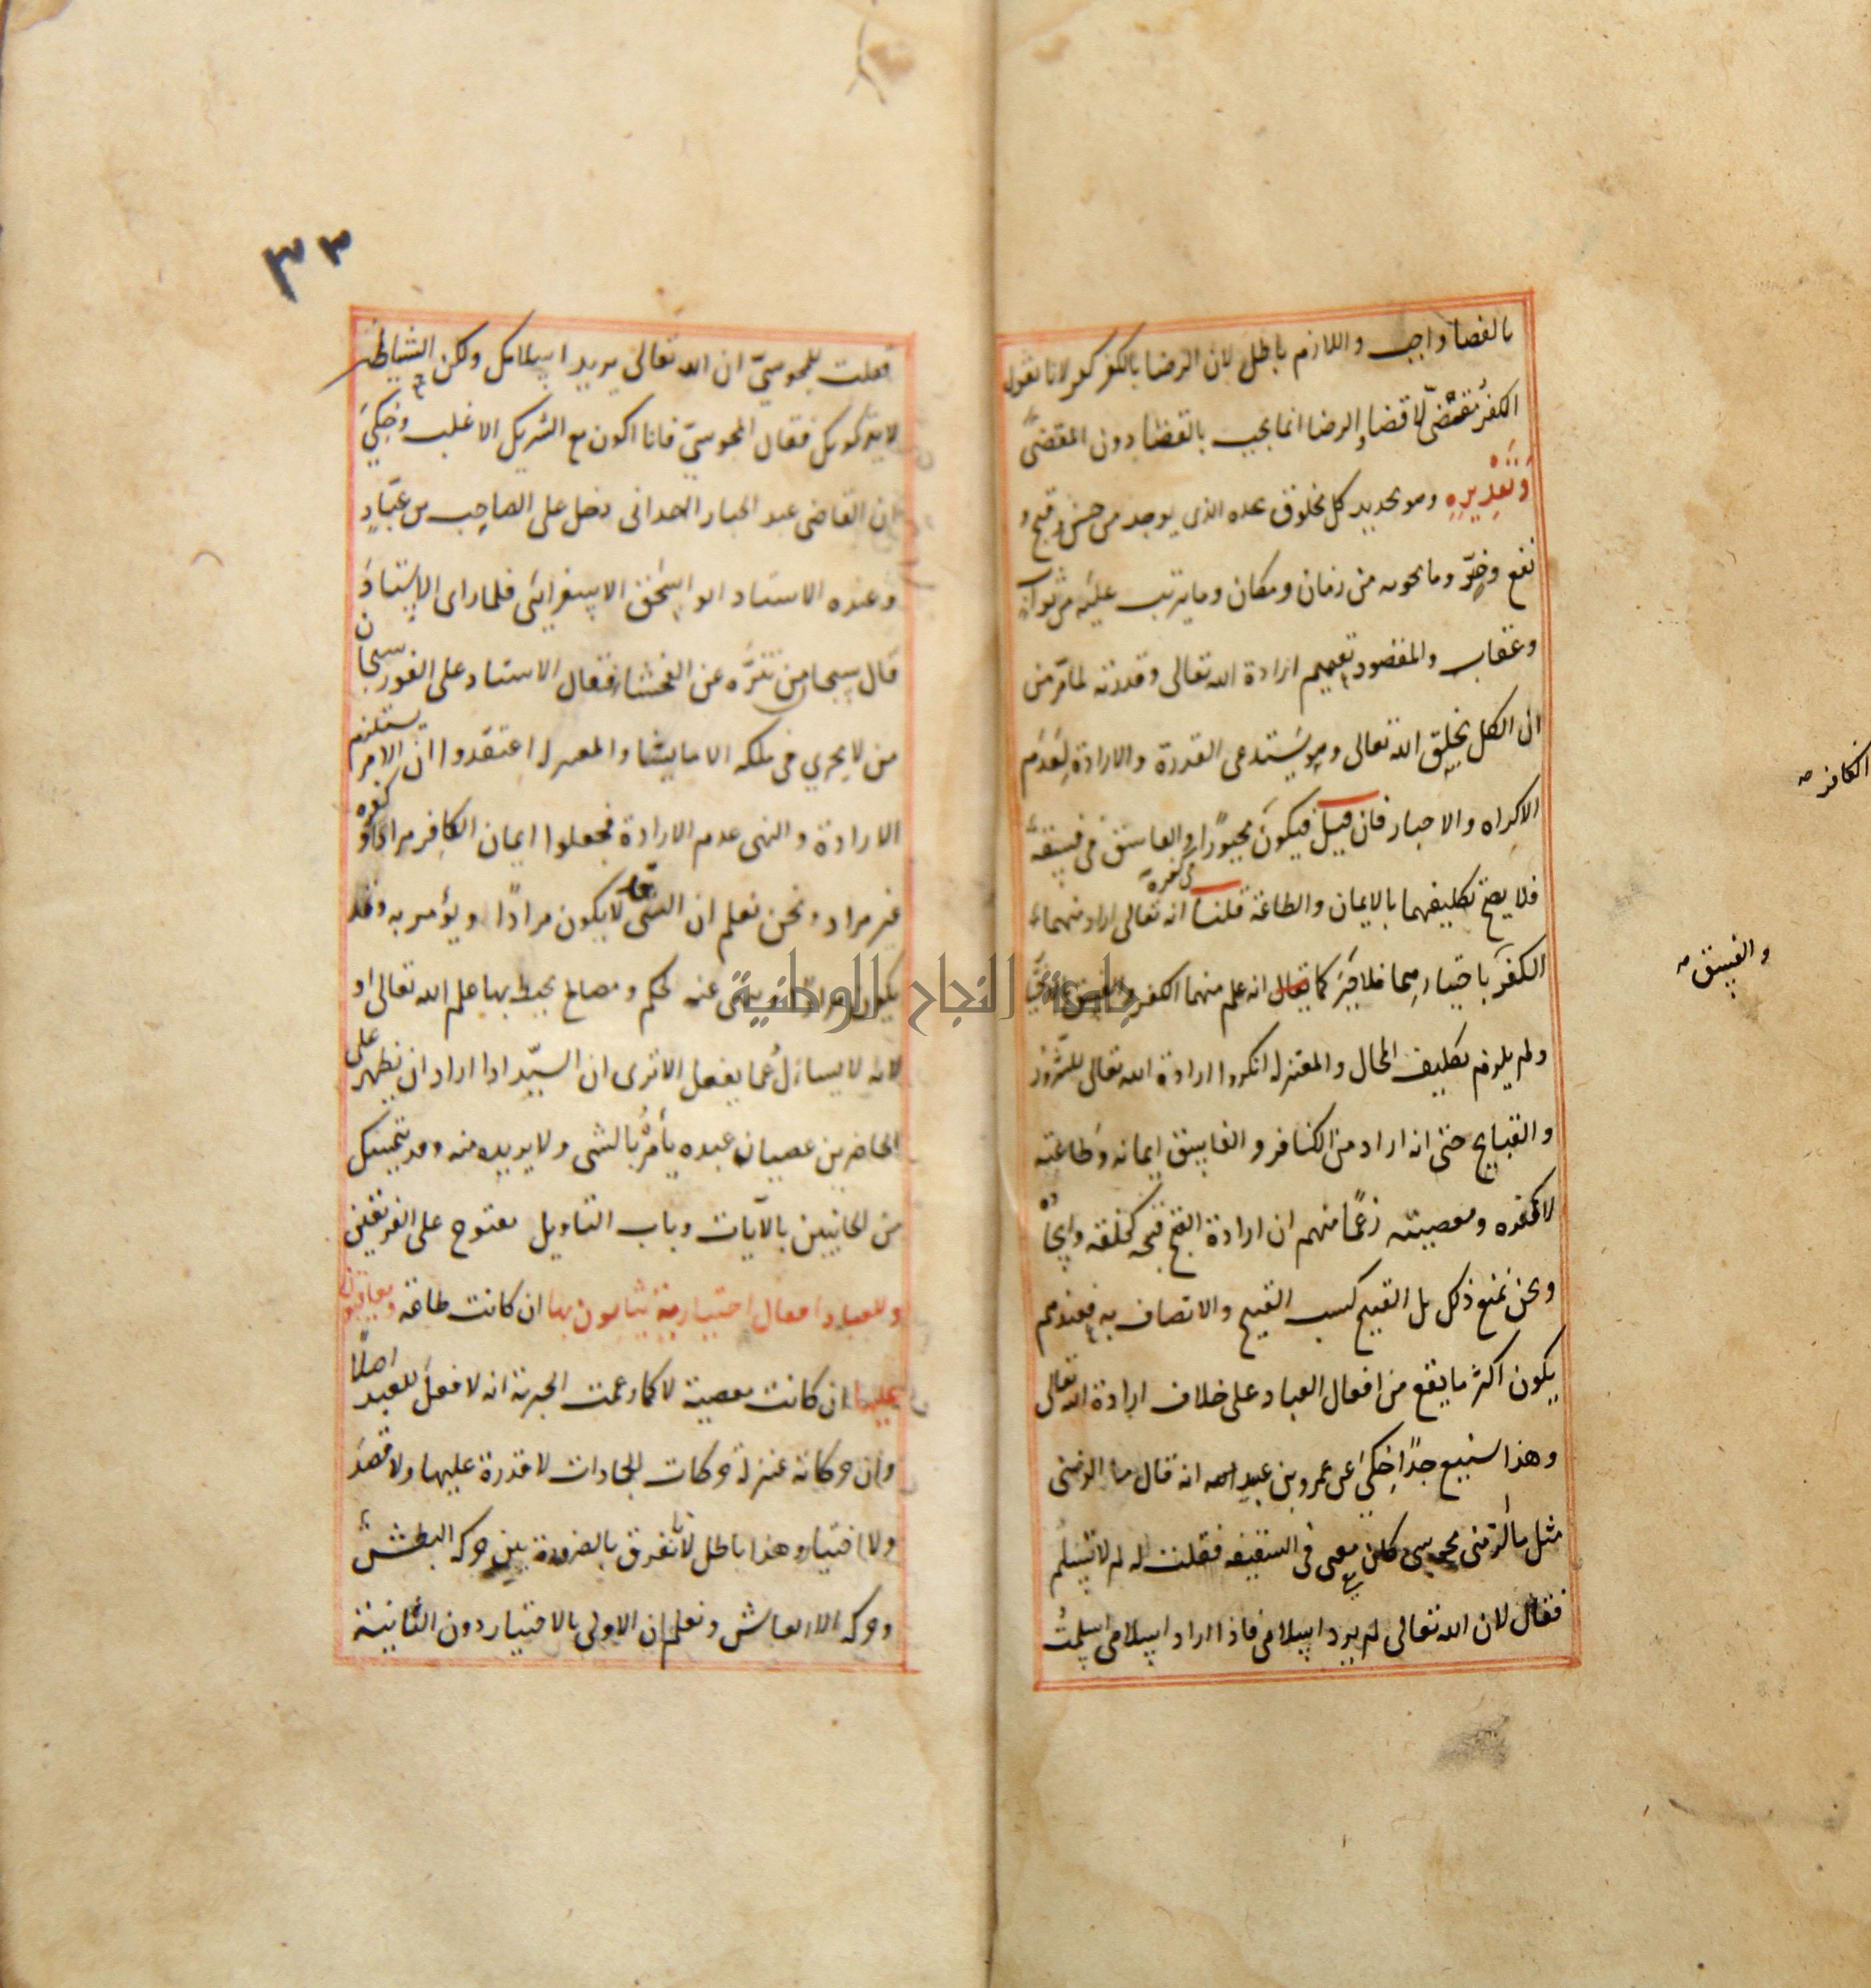 بالقضا واجب واللازم باطل لان الرضا بالكفر كفر لانا نقول
الكفر مقضى لا قضا والرضا انما يجب بالقضا دون المقضى
وَتَقْدِيرِهِ وهو تحديد كل مخلوق بحده الذى يوجد من حسن وقبح و
نفع وضرّ وما يحويه من زمان ومكان وما يترتب عليه من ثواب
وعقاب والمقصود تعميم ارادة الله تعالى وقدرته لما مرّ من
ان الكل بخلق الله تعالى وهو يستدعى القدرة والارادة لعدم
الاكراه والاجبار فان قيل فيكون الكافر مجبورًا فى كفره والفاسق فى فسقه
فلا يصح تكليفهما بالايمان والطاعة قلنا انه تعالى اراد منهما
الكفر والفسق باختيارهما فلا جبر كما انه علم منهما الكفر والفسق بالاختيار
ولم يلزم تكليف المحال والمعتزلة انكروا ارادة الله تعالى للشرور
والقبايح حتى انه اراد من الكافر والفاسق ايمانه وطاعته
لا كفره ومعصيته زعمًا منهم ان ارادة القبح قبحه كخلقه وايجاده
ونحن نمنع ذلك بل القبيح كسب القبيح والاتصاف به فعندهم
يكون اكثر ما يقع من افعال العباد على خلاف ارادة الله تعالى
وهذا شنيع جدًا حُكِىَ عن عمرو بن عبيد انه قال ما الزمنى
مثل ما الزمنى مجوسى كان معى فى السفينه فقلت له لم لا تسلم
فقال لان الله تعالى لم يرد اسلامى فاذا اراد اسلامى اسلمت
الكافر صح
والفسق صح
٣٣
فقلت للمجوسىّ ان الله تعالى يريد اسلامك ولكن الشياطين
لا يتركونك فقال المجوسىّ فانا اكون مع الشريك الاغلب وحُكِىَ
ان القاضى عبد الجبار الهمدانى دخل على الصاحب بن عبّاد
وعنده الاستاد ابو اسحق الاسفرائنى فلما راى الاستاد
قال سبحان من تنزّه عن الفحشاء فقال الاستاد على الفور سبحان
من لا يجري فى ملكه الا ما يشا والمعتزله اعتقدوا ان الامر يستلزم
الارادة والنهى عدم الارادة فجعلوا ايمان الكافر مرادًا وكفره
غير مراد ونحن نعلم ان الشى قد لا يكون مرادًا ويؤمر به وقد
يكون مرادًا وينهى عنه لحكم ومصالح يحيط بها علم الله تعالى او
لانه لا يسأل عما يفعل الا ترى ان السيّد اذا اراد ان يظهر على
الحاضرين عصيان عبده يأمره بالشى ولا يريده منه وقد يتمسك
من الجانبين بالآيات وباب التاويل مفتوح على الفريقين
وللعباد افعال اختيارية يثابون بها ان كانت طاعة ويعاقبون
عليها ان كانت معصية لا كما زعمت الجبرية انه لا فعل للعبد اصلًا
وان حركاته بمنزلة حركات الجمادات لا قدرة عليها ولا قصد
ولا اختيار وهذا باطل لانا نفرق بالضرورة بين حركة البطش
وحركة الارتعاش ونعلم ان الاولى بالاختيار دون الثانية
جامعة النجاح الوطنية